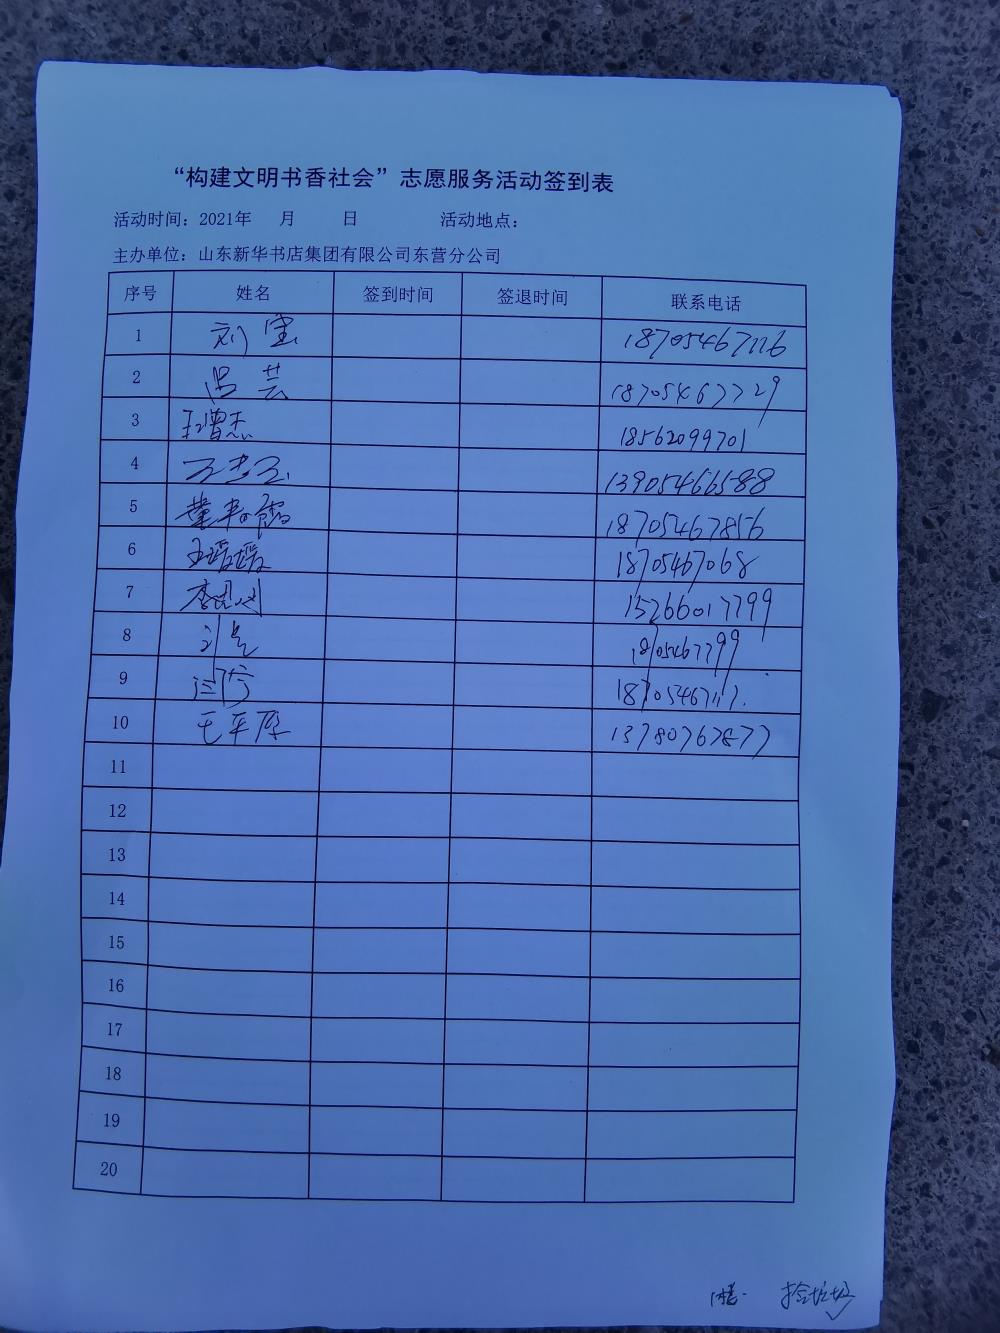 “构建文明书香社会”志愿服务活动签到表
活动时间：2021年 月 日 活动地点：
主办单位：山东新华书店集团有限公司东营分公司
序号 姓名 签到时间 签退时间 联系电话
1 刘宝 18705467126
2 吕芸 18705467729
3 王增志 18562099701
4 13905466588
5 董春霞 18705467856
6 王瑷瑷 18705467068
7 李 15266017799
8 18705467799
9 汪 18705467117
10 王平原 13780767877
11
12
13
14
15
16
17
18
19
20
捡垃圾